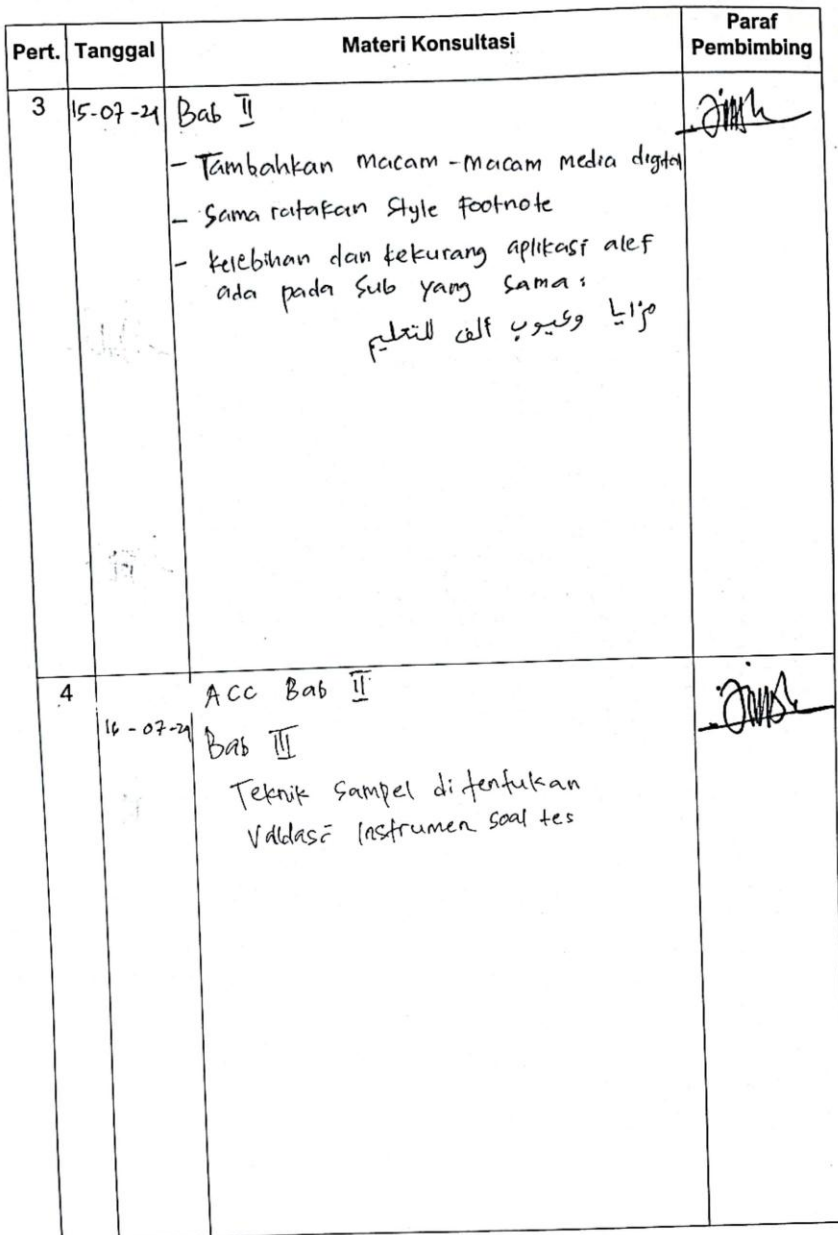 Pert. Tanggal Materi Konsultasi Paraf Pembimbing
3 15-07-24 Bab II
- Tambahkan macam-macam media digital
- Sama ratakan Style Footnote
- Kelebihan dan kekurang aplikasi alef
ada pada Sub yang sama:
مزايا وعيوب ألف للتعليم
4 ACC Bab II
16-07-24 Bab III
Teknik Sampel di tentukan
Validasi Instrumen soal tes